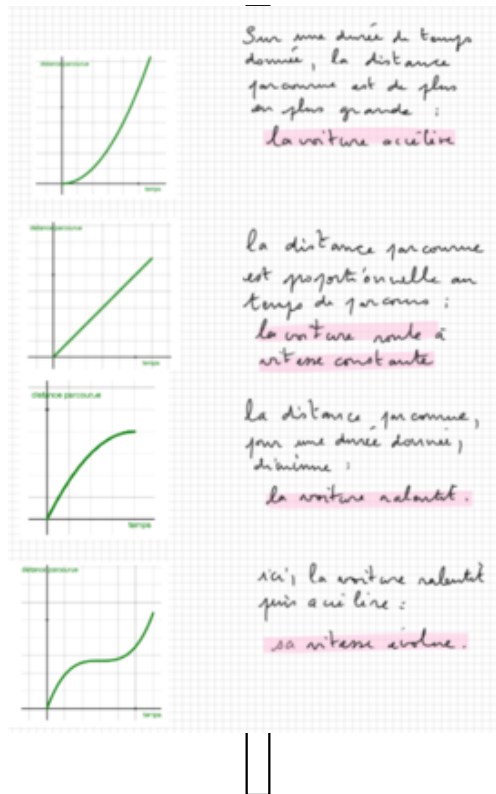 distance parcourue
temps
Sur une durée de temps
donnée, la distance
parcourue est de plus
en plus grande :
la voiture accélère
distance parcourue
temps
la distance parcourue
est proportionnelle au
temps de parcours :
la voiture roule à
vitesse constante
distance parcourue
temps
la distance parcourue,
pour une durée donnée,
diminue :
la voiture ralentit.
distance parcourue
temps
ici, la voiture ralentit
puis accélère :
sa vitesse évolue.